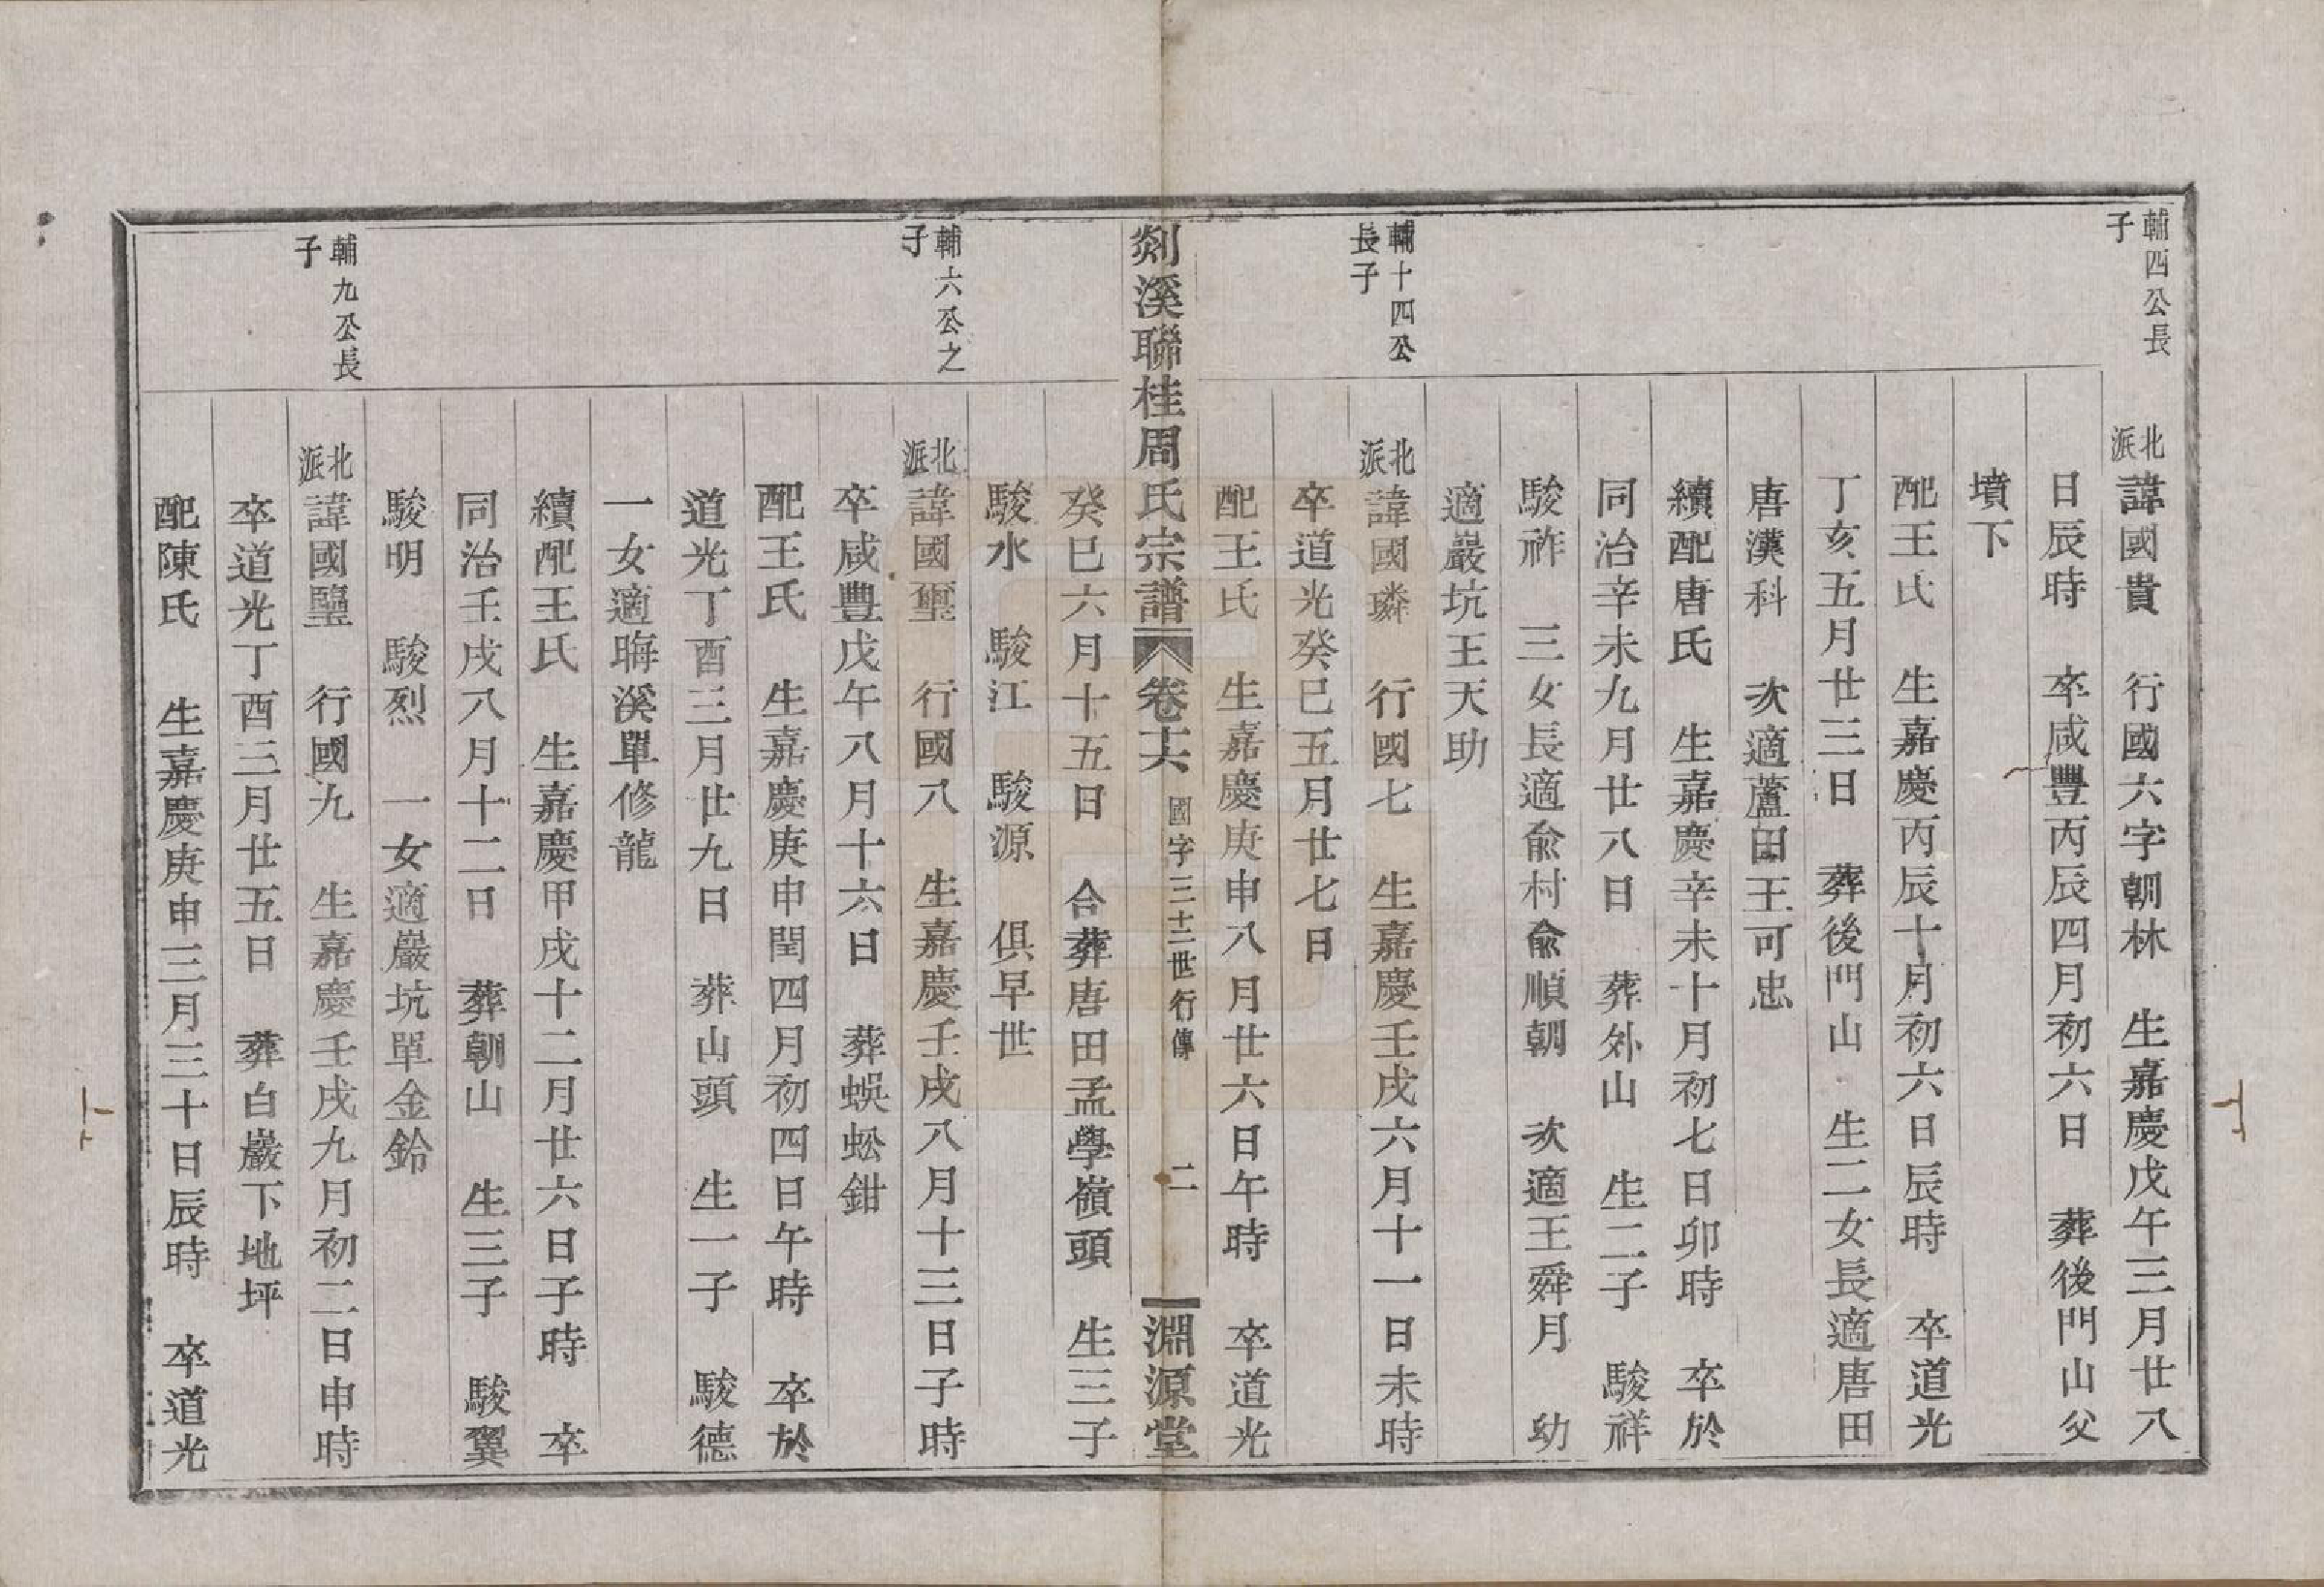 輔四公長子
北派 諱國貴 行國六字朝林 生嘉慶戊午三月廿八
日辰時 卒咸豐丙辰四月初六日 葬後門山父
墳下
配王氏 生嘉慶丙辰十月初六日辰時 卒道光
丁亥五月廿三日 葬後門山 生二女長適唐田
唐漢科 次適蘆田王可忠
續配唐氏 生嘉慶辛未十月初七日卯時 卒於
同治辛未九月廿八日 葬外山 生二子 駿祥
駿祚 三女長適俞村俞順朝 次適王舜月 幼
適巖坑王天助
輔十四公長子
北派 諱國璘 行國七 生嘉慶壬戌六月十一日未時
卒道光癸巳五月廿七日
配王氏 生嘉慶庚申八月廿六日午時 卒道光
剡溪聯桂周氏宗譜 卷十六 國字三十二世行傳 二 淵源堂
癸巳六月十五日 合葬唐田孟學嶺頭 生三子
駿水 駿江 駿源 俱早世
輔六公之子
北派 諱國璽 行國八 生嘉慶壬戌八月十三日子時
卒咸豐戊午八月十六日 葬蜈蚣鉗
配王氏 生嘉慶庚申閏四月初四日午時 卒於
道光丁酉三月廿九日 葬山頭 生一子 駿德
一女適晦溪單修龍
續配王氏 生嘉慶甲戌十二月廿六日子時 卒
同治壬戌八月十二日 葬朝山 生三子 駿翼
駿明 駿烈 一女適巖坑單金鈴
輔九公長子
北派 諱國璧 行國九 生嘉慶壬戌九月初二日申時
卒道光丁酉三月廿五日 葬白巖下地坪
配陳氏 生嘉慶庚申三月三十日辰時 卒道光